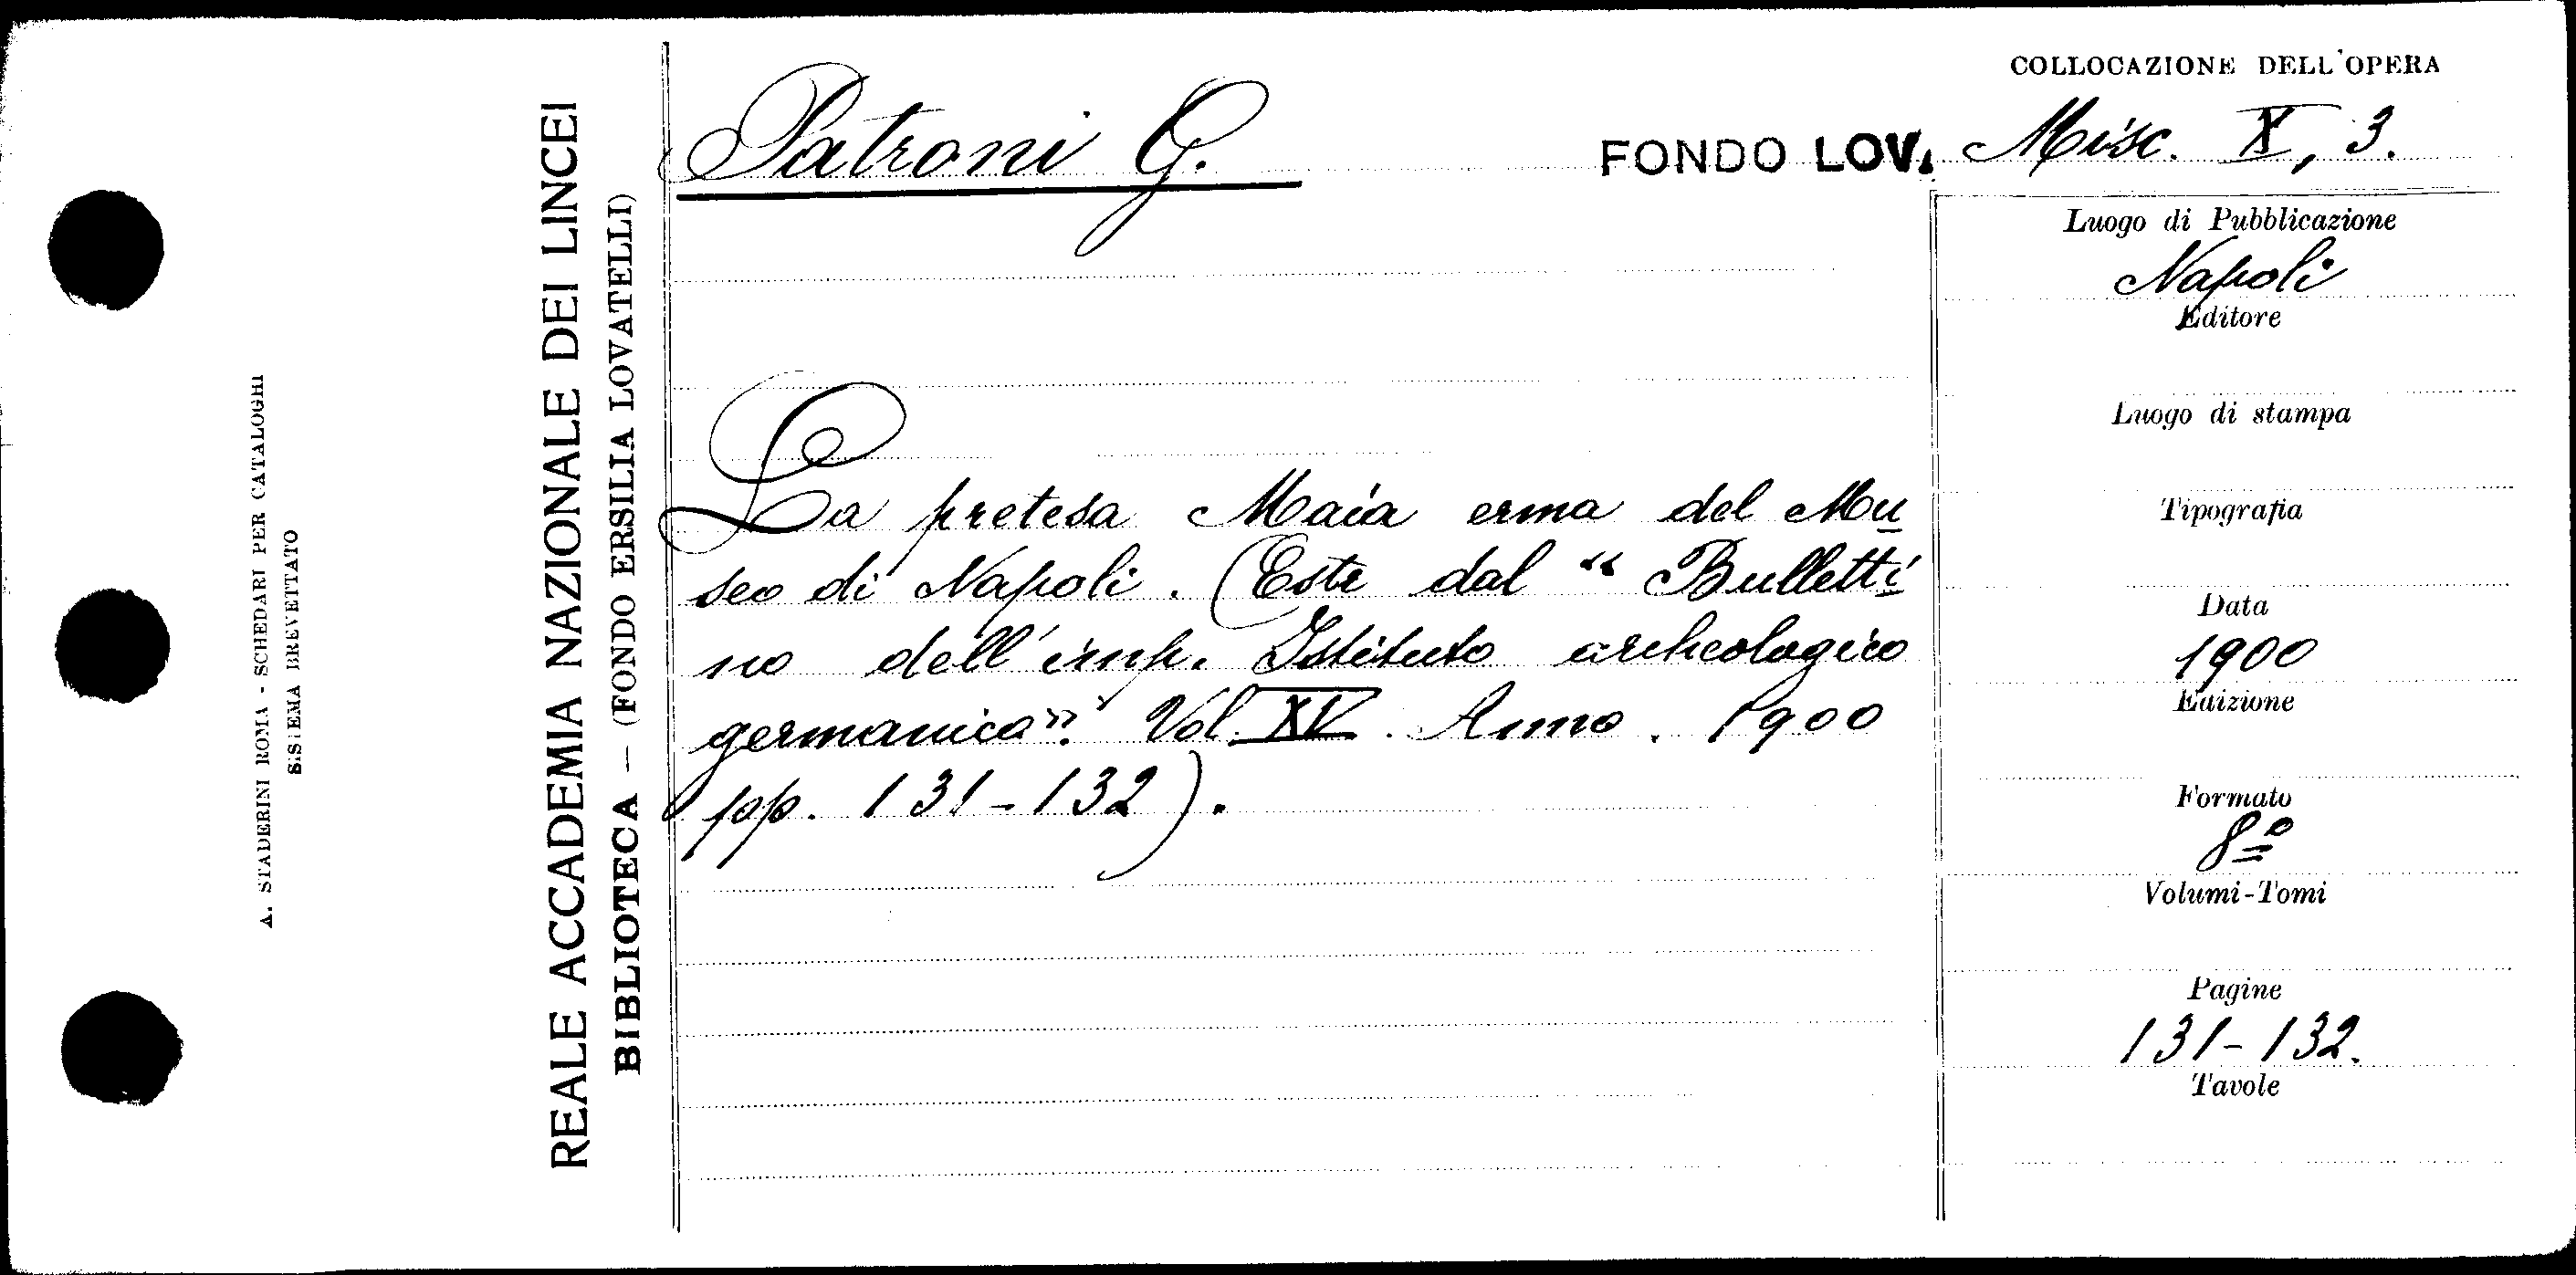 A. STADERINI ROMA - SCHEDARI PER CATALOGHI
SISTEMA BREVETTATO
REALE ACCADEMIA NAZIONALE DEI LINCEI
BIBLIOTECA — (FONDO ERSILIA LOVATELLI)
Patroni G.
La pretesa Maia erma del Mu
seo di Napoli. (Estr dal " Bulletti
no dell'imp. Istituto archeologico
germanico". Vol. XV. Anno. 1900
pp. 131-132).
COLLOCAZIONE DELL'OPERA
FONDO LOV. Misc. X, 3.
Luogo di Pubblicazione
Napoli
Editore
Luogo di stampa
Tipografia
Data
1900
Edizione
Formato
8º
Volumi-Tomi
Pagine
131-132.
Tavole